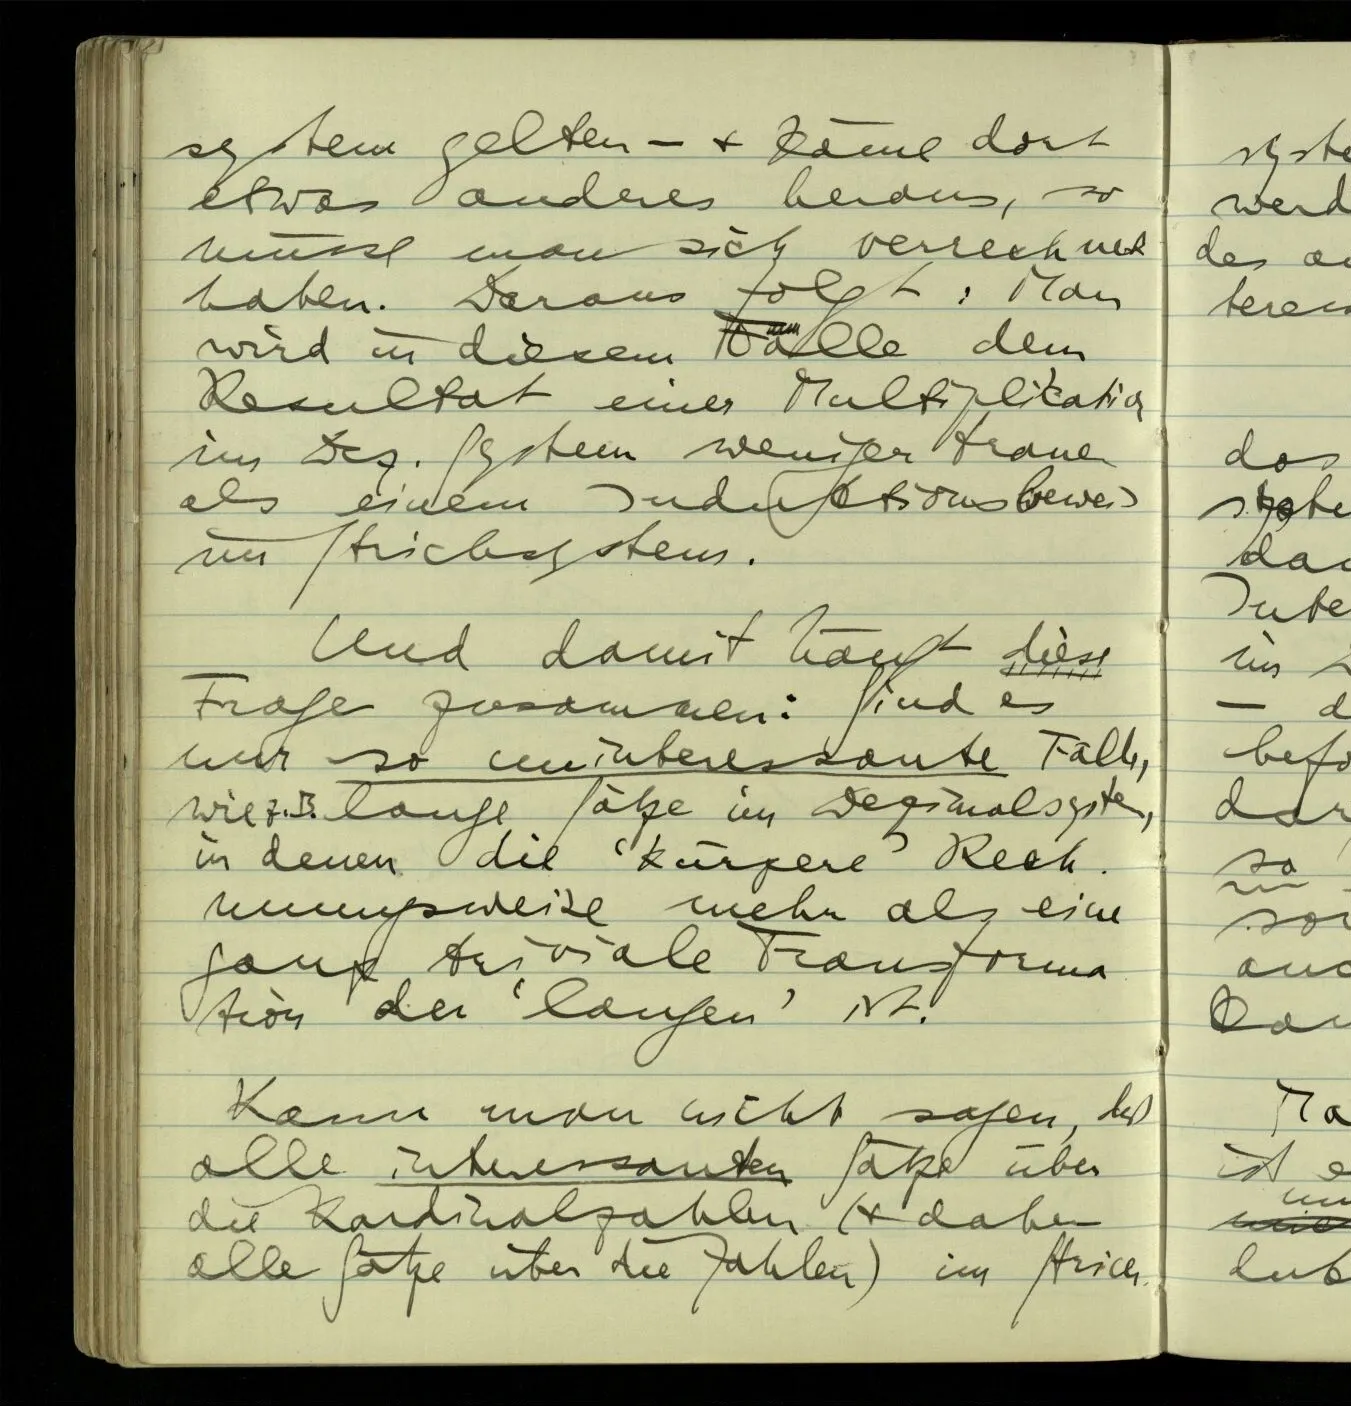 system gelten – + käme dort
etwas anderes heraus, so
müsse man sich verrechnet
haben. Daraus folgt: Man
wird in diesem Falle dem
Resultat einer Multiplikation
im Dez. System weniger trauen
als einem Induktionsbeweis
im Strichsystem.
Und damit hängt diese
Frage zusammen: Sind es
nur so uninteressante Fälle,
wie z.B. lange Sätze im Dezimalsystem,
in denen die ‘kürzere’ Rech
nungsweise mehr als eine
ganz triviale Transforma
tion der ‘langen’ ist.
Kann man nicht sagen, daß
alle interessanten Sätze über
die Kardinalzahlen (+ daher
alle Sätze über die Zahlen) im Strich
syste
werd
das
ist